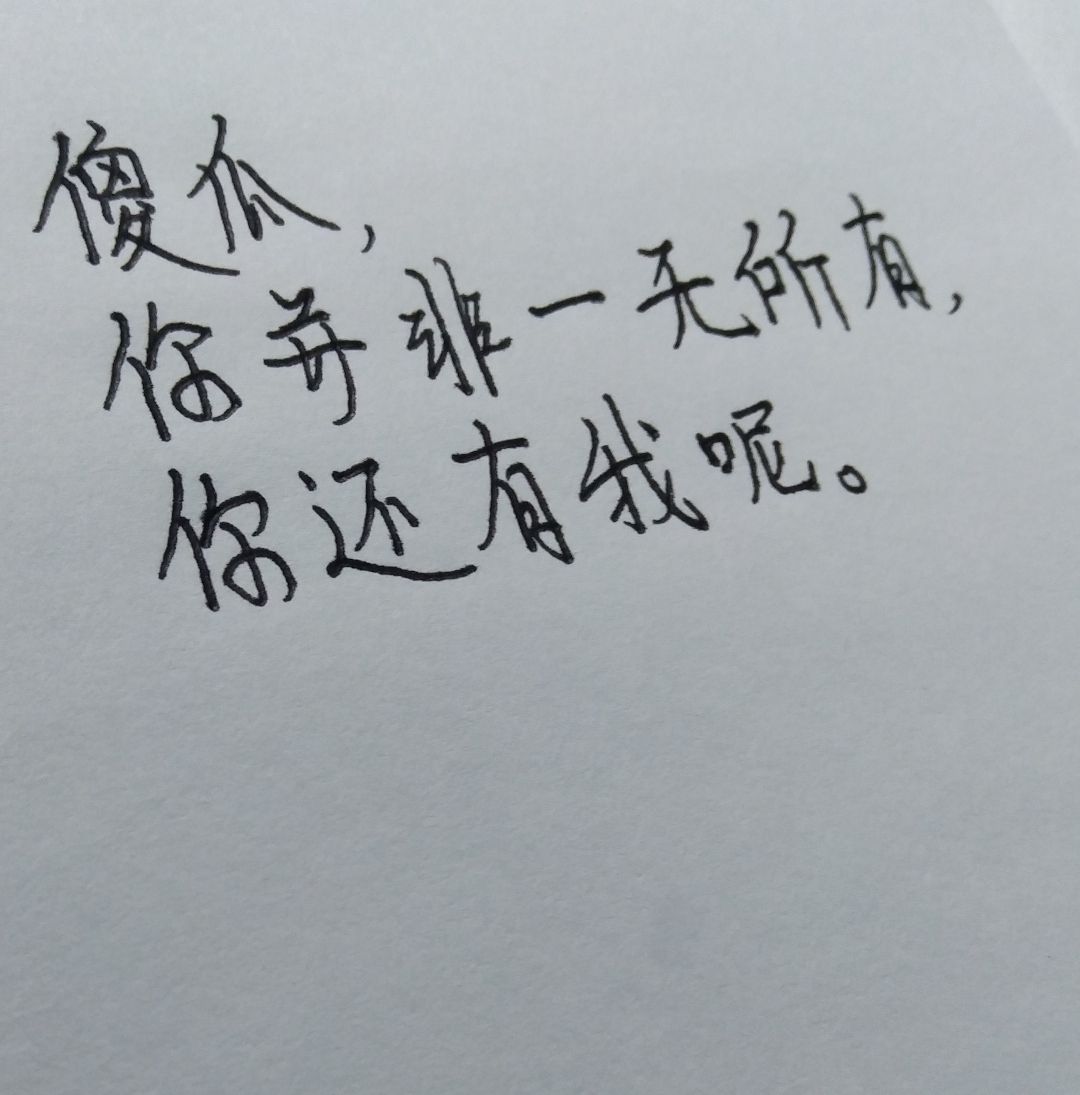 傻瓜,
你并非一无所有,
你还有我呢。